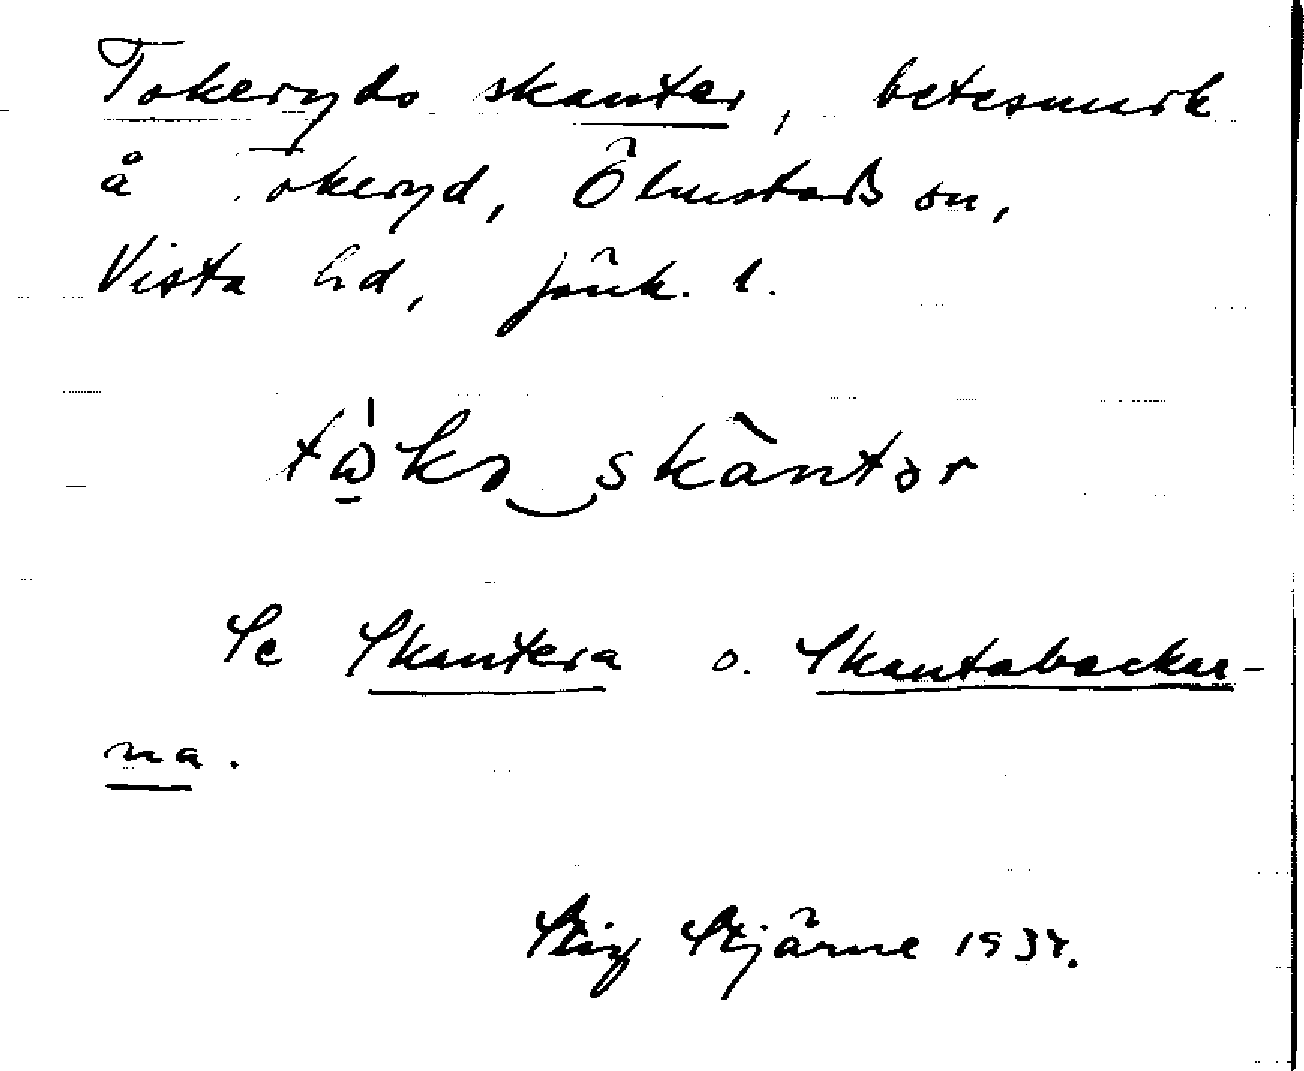 Tokeryds skanter, betesmark
å Tokeryd, Ölmstads sn,
Vista hd, Jönk. l.
Se Skantera o. Skantabackar-
na.
Stig Stjärne 1934.